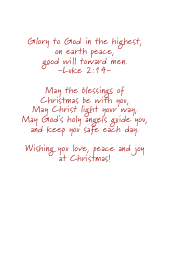 Glory to God in the highest,
on earth peace,
good will toward men.
~Luke 2:14~
May the blessings of
Christmas be with you,
May Christ light your way,
May God's holy angels guide you,
and keep you safe each day.
Wishing you love, peace and joy
at Christmas!